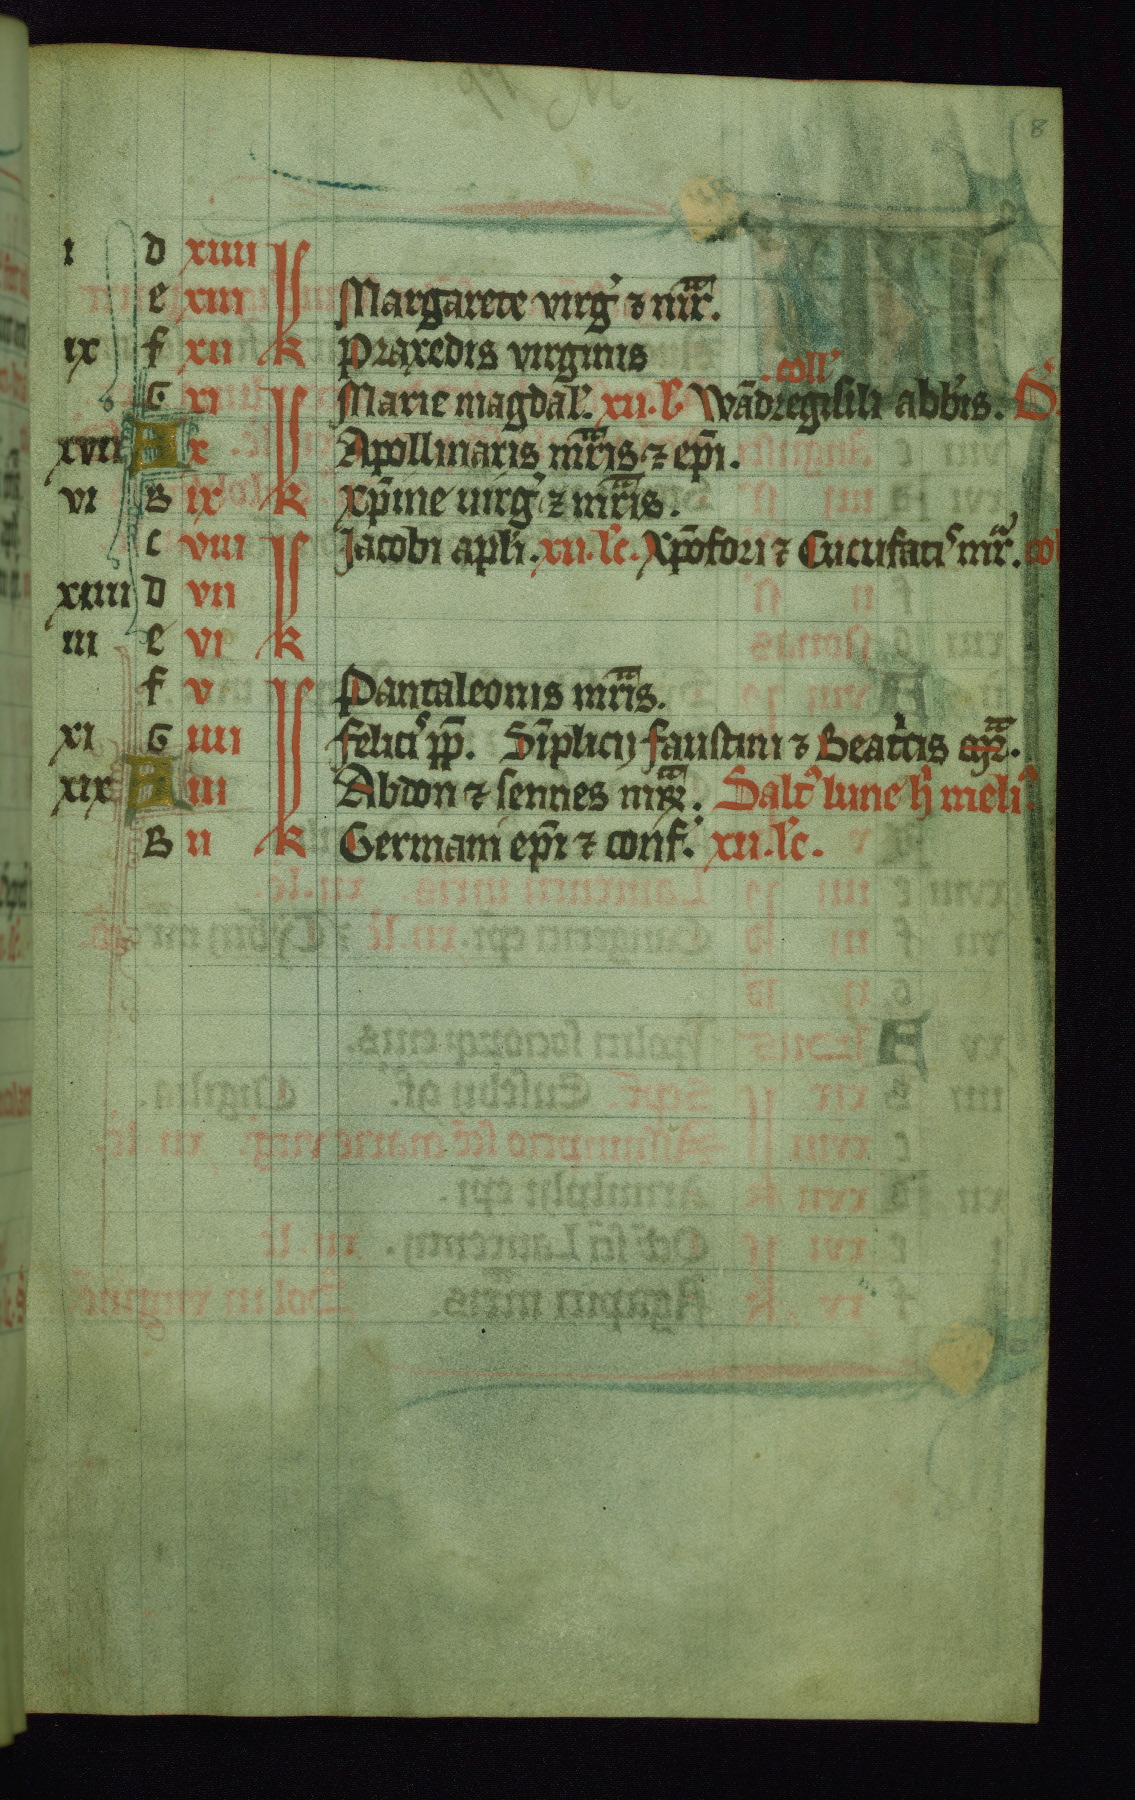 8
i D xiiii kl
e xiii kl Margarete virg̉ ⁊ mr̄.
ix f xii k Praxedis virginis
coll'
G xi kl Marie magdal'. xii.l' Wādregisili abb̄is. S.
xvii A x kl Apollinaris mr̄is ⁊ ep̄i.
vi B ix k Xp̄ine uirg̉ ⁊ mr̄is.
c viii kl Jacobi apl'i. xii.l'c. Xp̄ofori ⁊ Cucufati mr̄. co
xiiii D vii kl
iii e vi k
f v kl Pantaleonis mr̄is.
xi G iiii kl felici pp̄. Sīplicij faustini ⁊ Beat'cis
xix A iii kl Abdon ⁊ sennes mr̄. Salt' lune h̄ meli'
B ii k Germani ep̄i ⁊ conf'. xii.l'c.